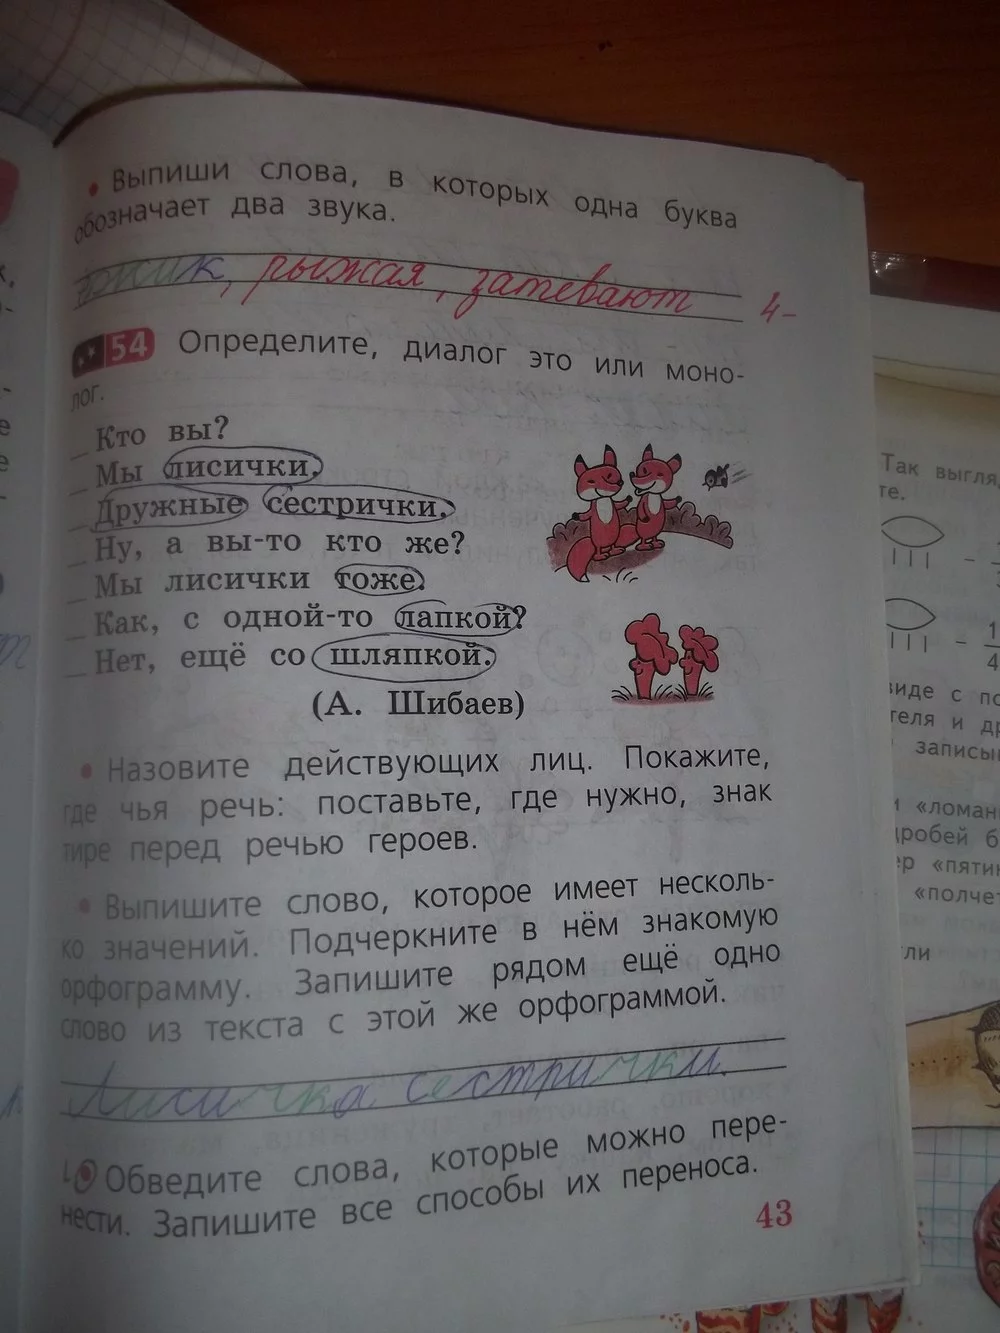 • Выпиши слова, в которых одна буква
обозначает два звука.
рыжая, затевают 4-
54 Определите, диалог это или моно-
лог.
_ Кто вы?
_ Мы лисички.
_ Дружные сестрички.
_ Ну, а вы-то кто же?
_ Мы лисички тоже.
_ Как, с одной-то лапкой?
_ Нет, ещё со шляпкой.
(А. Шибаев)
• Назовите действующих лиц. Покажите,
где чья речь: поставьте, где нужно, знак
тире перед речью героев.
• Выпишите слово, которое имеет несколь-
ко значений. Подчеркните в нём знакомую
орфограмму. Запишите рядом ещё одно
слово из текста с этой же орфограммой.
Лисичка сестрички.
Обведите слова, которые можно пере-
нести. Запишите все способы их переноса.
43
Так выгля
те.
1
4
виде с по
теля и др
записы
«ломан
дробей б
ер «пяти
«полче
ли